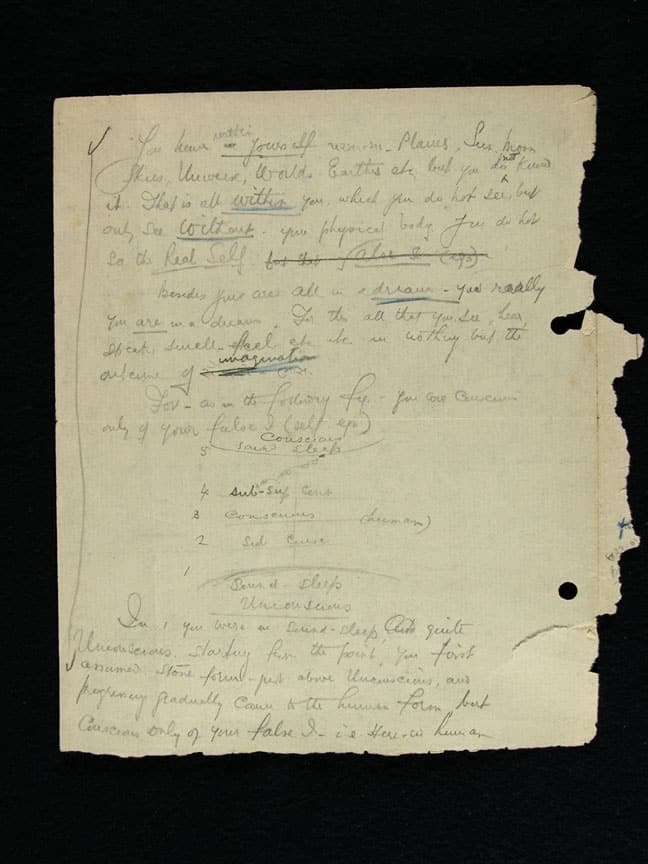 within
You have yourself various - Planes, Sun, Moon
Skies, Universe, Worlds Earths etc but you do not know
it. That is all within you, which you do not see, but
only see without - your physical body. You do not
see the Real Self. for that Also I (ego)
Besides you are all in a dream - you really
you are in a dream. For this all that you see, hear,
speak, smell - feel etc etc is nothing but the
outcome of imagination
For - as in the following fig. - you are conscious
only of your false I (self ego)
Conscious
5 Sound Sleep
4 Sub-Sup Cons
3 Conscious (human)
2 Sub Consc
1
Sound - Sleep
Unconscious
In 1 you were in Sound-sleep and quite
Unconscious. Starting from the point, you first
assumed stone form - just above Unconscious, and
progressing gradually came to the human form, but
Conscious only of your false I - i.e. Here in human